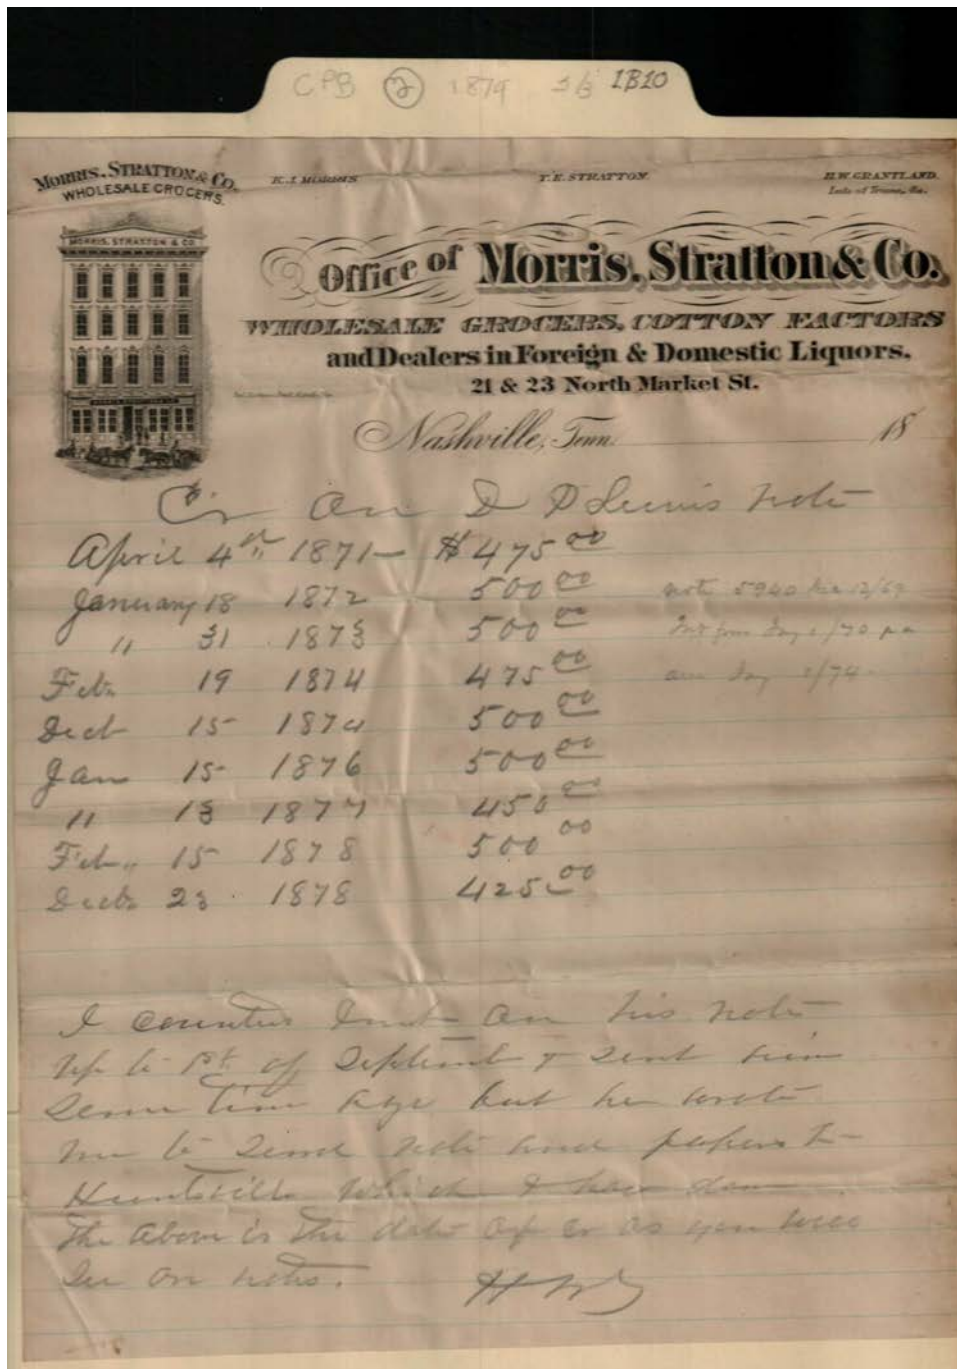 CPB 2 1879 IB10
MORRIS, STRATTON & CO.
WHOLESALE GROCERS.
K.J. MORRIS T.E. STRATTON. H.W. GRANTLAND.
Late of Ga.
MORRIS, STRATTON & CO
Office of Morris, Stratton & Co.
WHOLESALE GROCERS, COTTON FACTORS
and Dealers in Foreign & Domestic Liquors.
21 & 23 North Market St.
Nashville, Tenn. 18
Cr on D P Lewis note
April 4th 1871 — $475 00
January 18 1872 500 00 note 5940
" 31 1873 500 00
Feb 19 1874 475 00
Dect 15 1874 500 00
Jan 15 1876 500 00
" 13 1877 450 00
Feb 15 1878 500 00
Dect 23 1878 425 00
I counted Int on his note
up to 1st of Septembr & sent him
some time ago but he wrote
me to send note and papers to
Huntsville which I have done
The above is the date of cr as you will
see on notes. HWG